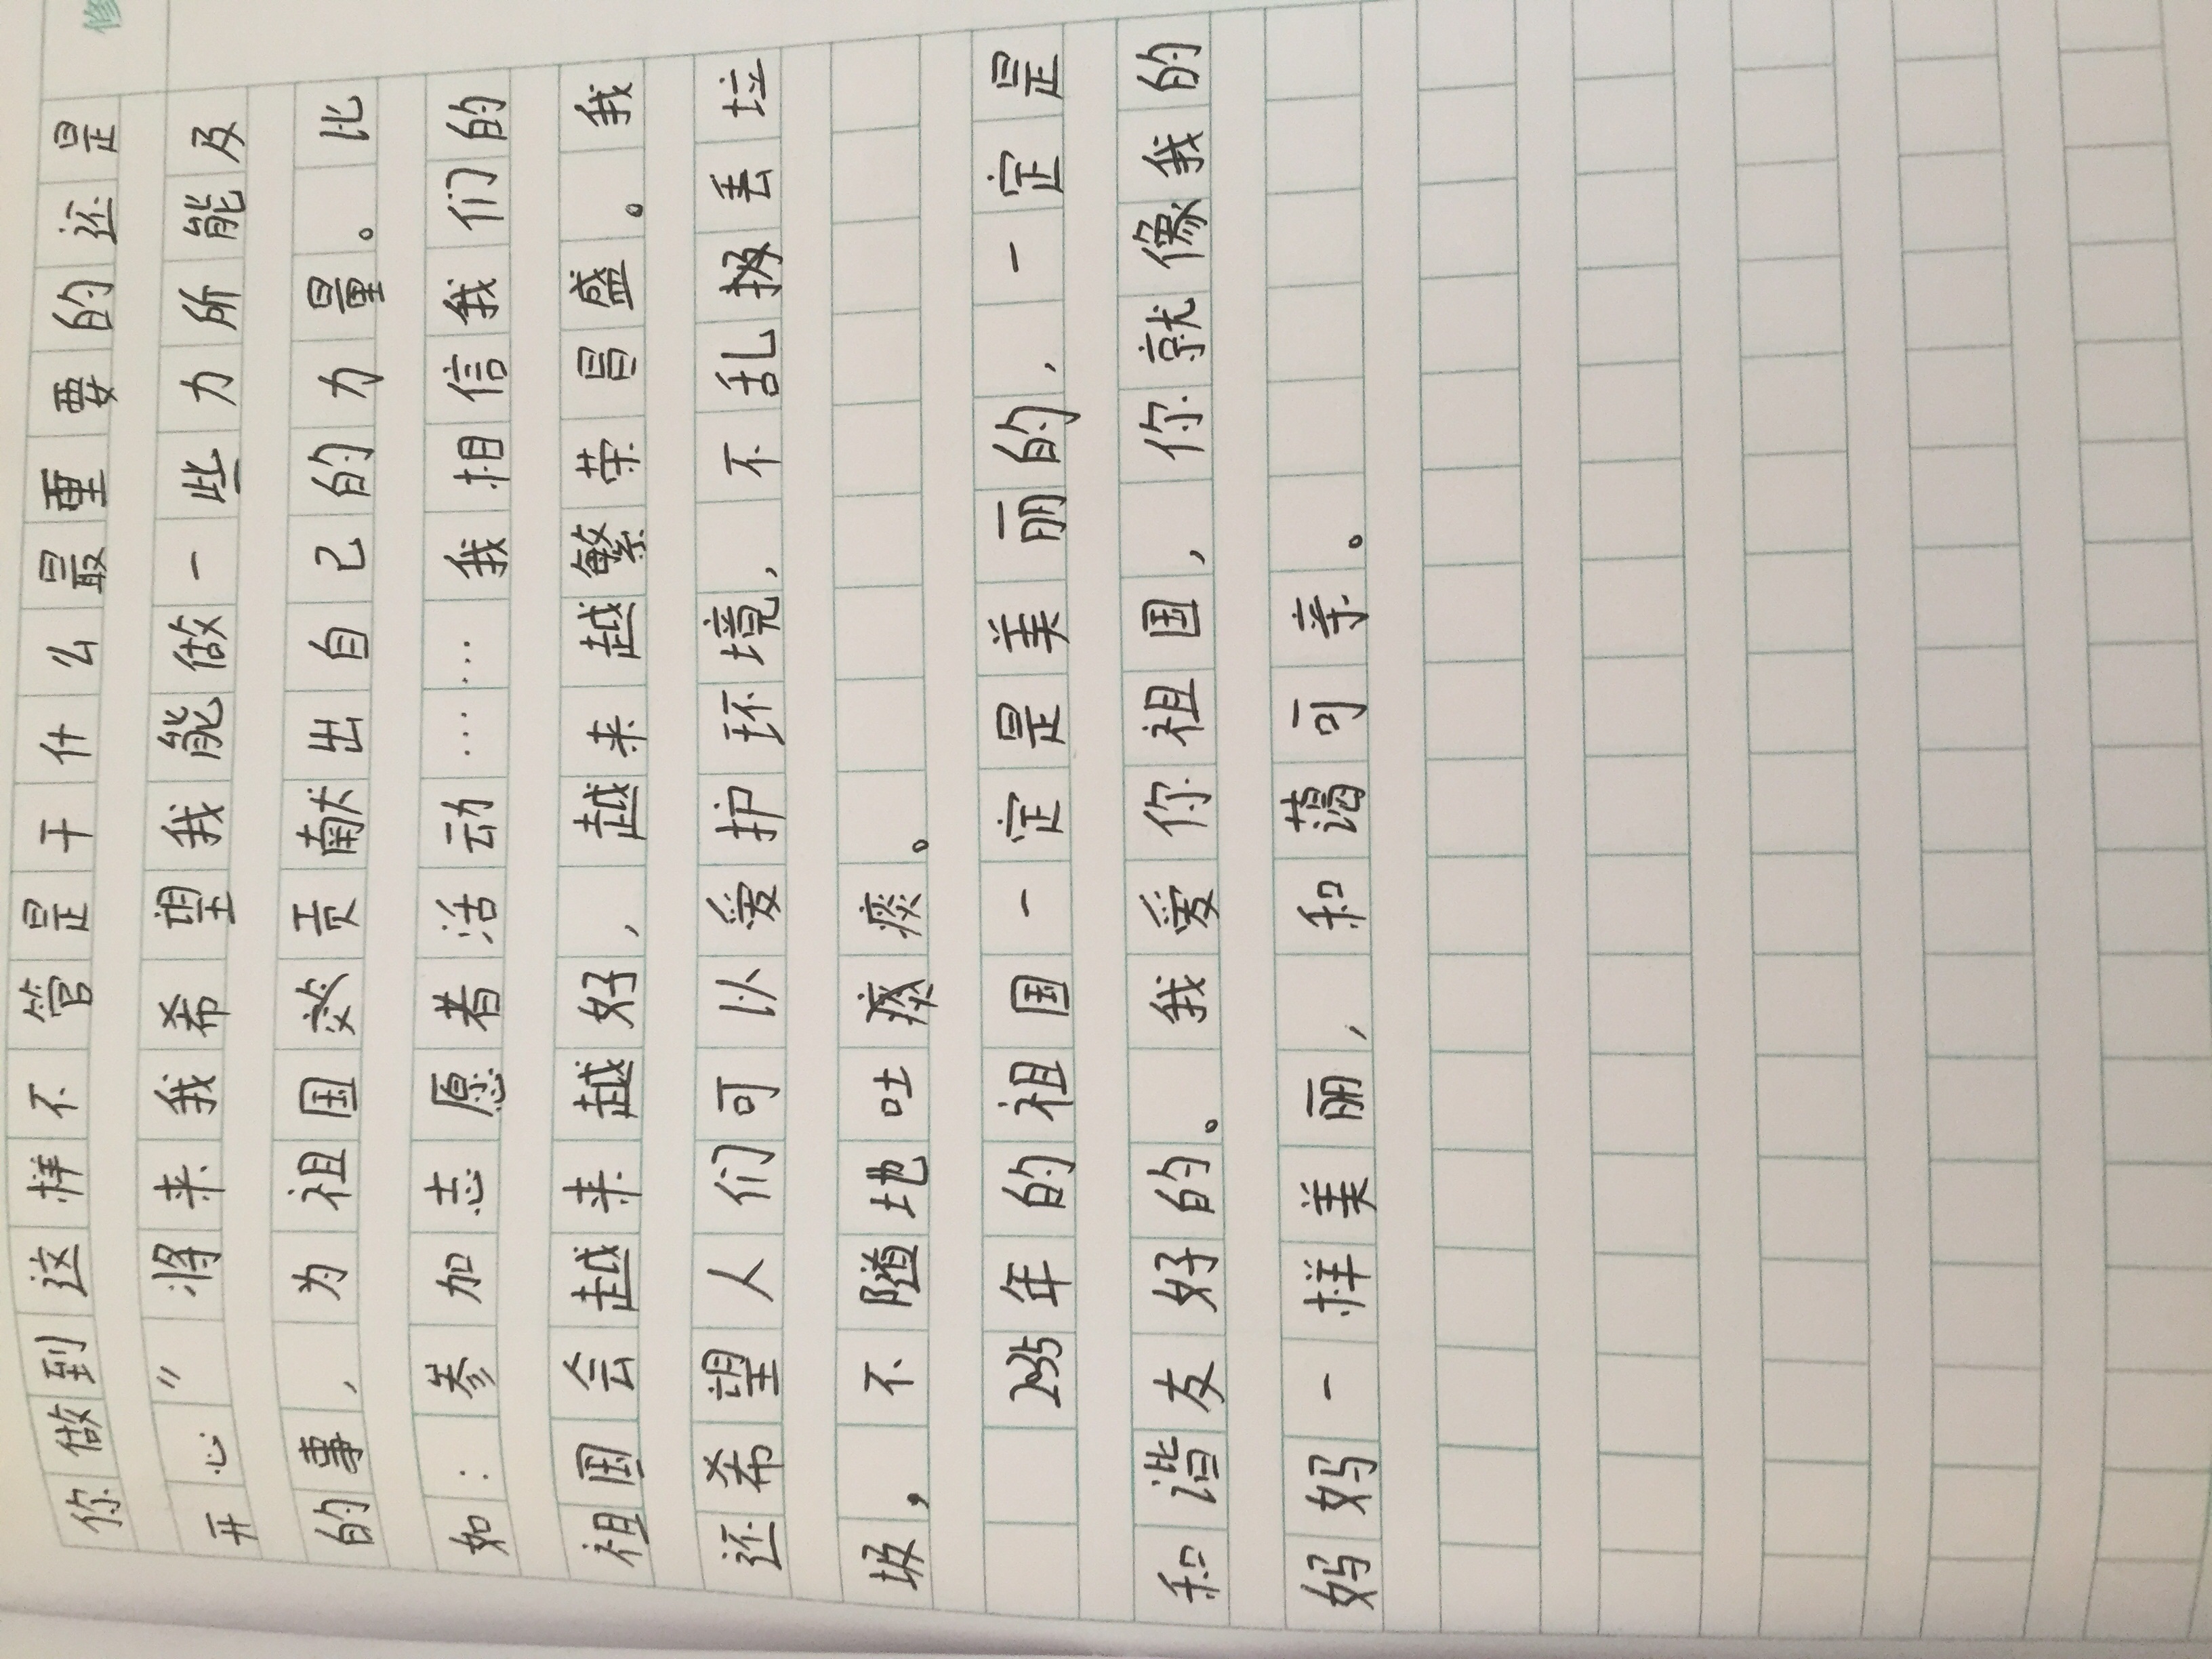 修
你做到这样不管是干什么最重要的还是
开心”将来我希望我能做一些力所能及
的事，为祖国效贡献出自己的力量。比
如：参加志愿者活动……我相信我们的
祖国会越来越好，越来越繁荣昌盛。我
还希望人们可以爱护环境，不乱扔丢垃
圾，不随地吐痰痰。
235年的祖国一定是美丽的，一定是
和谐友好的。我爱你祖国，你就像我的
妈妈一样美丽，和蔼可亲。